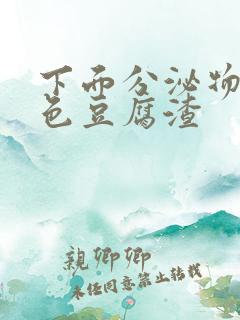 下面分泌物
色豆腐渣
親卿卿
未经同意禁止转载